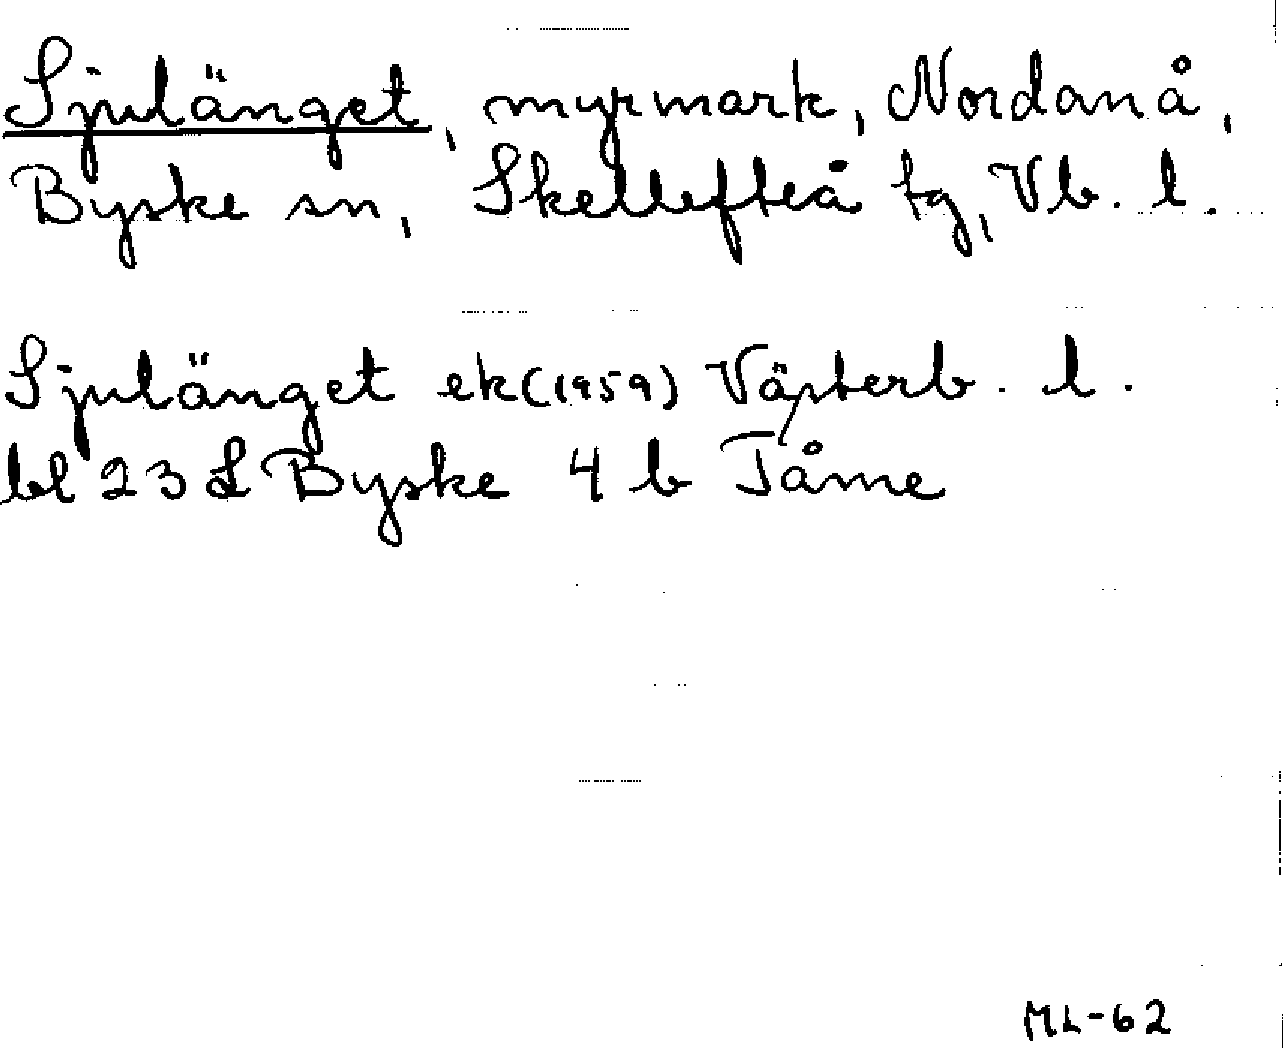 Sjulänget, myrmark, Nordanå,
Byske sn, Skellefteå tg, Vb. l.
Sjulänget ek(1959) Västerb. l.
bl 23 L Byske 4 b Tåme
ML-62